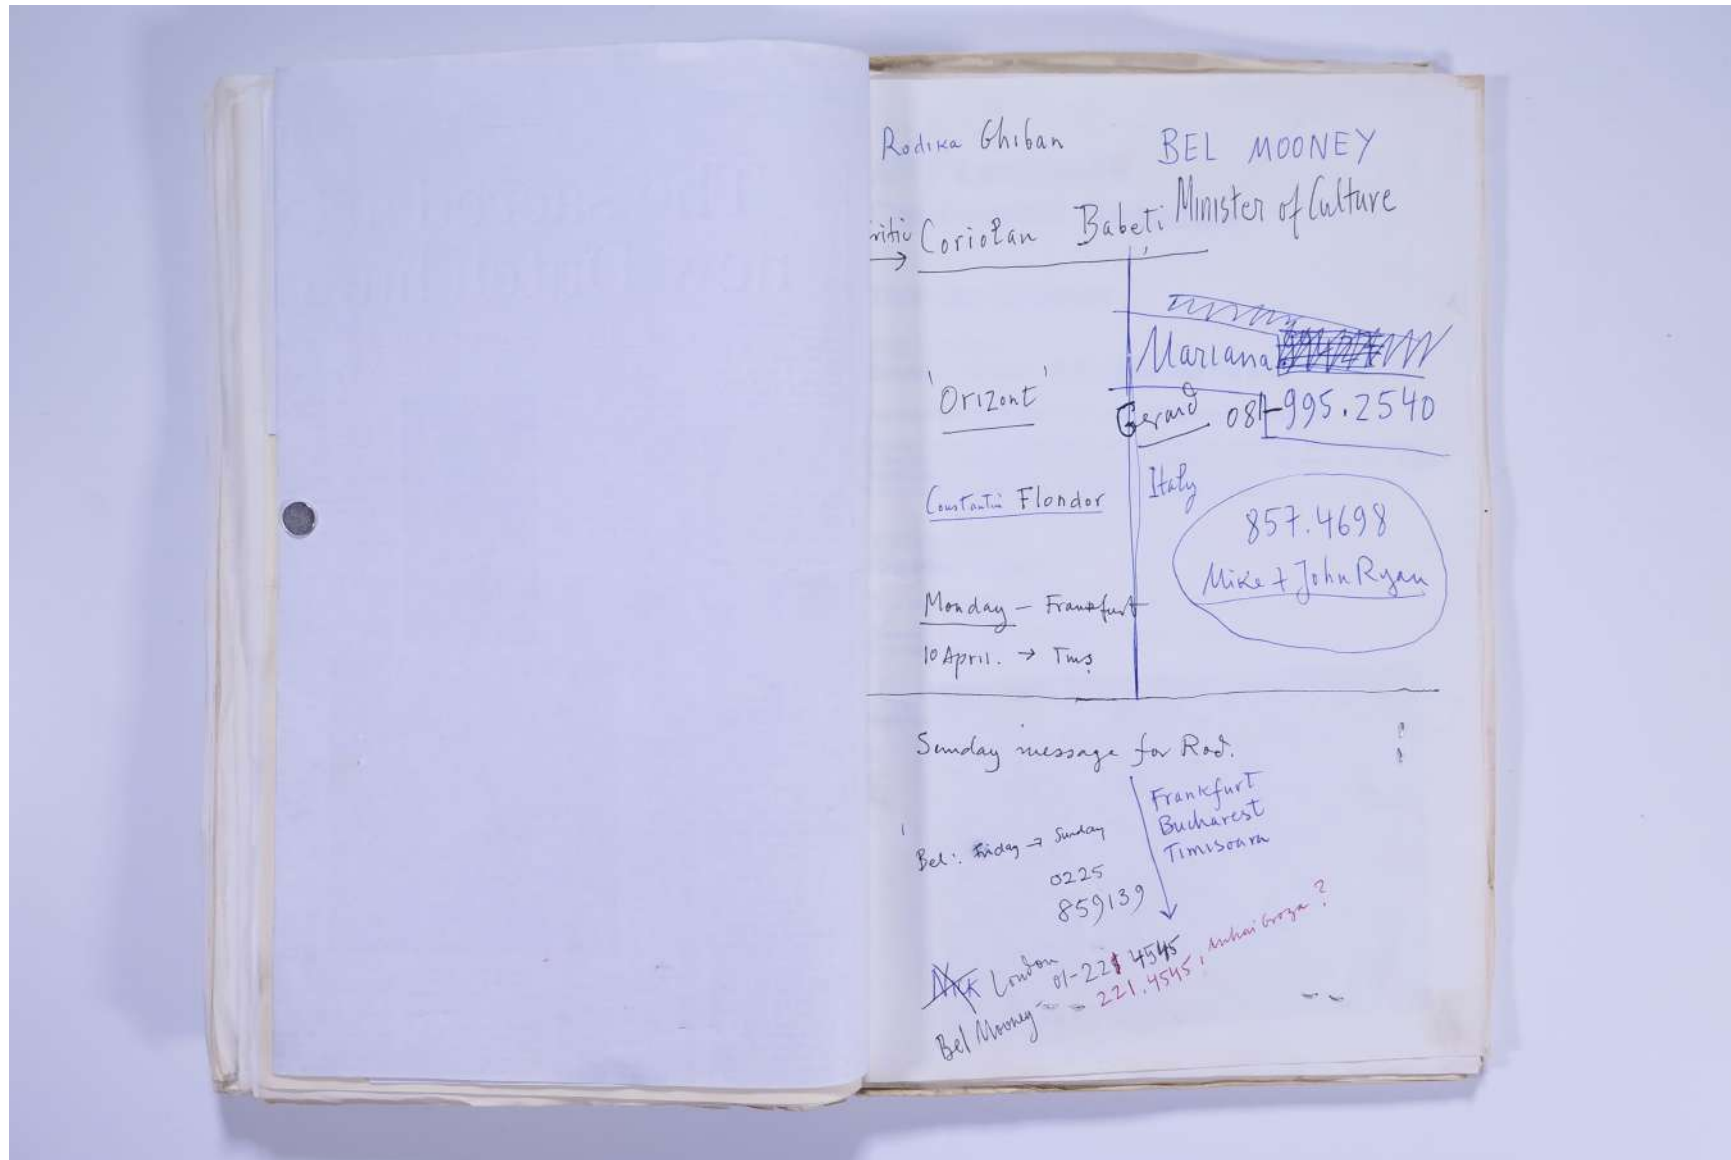 Rodika Ghiban
BEL MOONEY
Minister of Culture
ritic Coriolan Babeți
→
'Orizont'
Mariana
Gerard 081-995.2540
Constantin Flondor
Italy
857.4698
Mike + John Ryan
Monday – Frankfurt
10 April. → Tmș
Sunday message for Rod.
Frankfurt
Bucharest
Timisoara
Bel: Friday → Sunday
0225
859139
London 01-221 4545
Bel Mooney 221.4545, Mihai Groza?